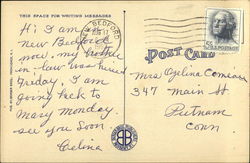 THIS SPACE FOR WRITING MESSAGES
Hi I am in
new Bedford
now. my brother
in-law was buried
Friday. I am
going back to
Mary Monday
see you soon
BEDFORD
POST CARD
Mrs Ozelina Comeau
347 Main St
Putnam
Conn